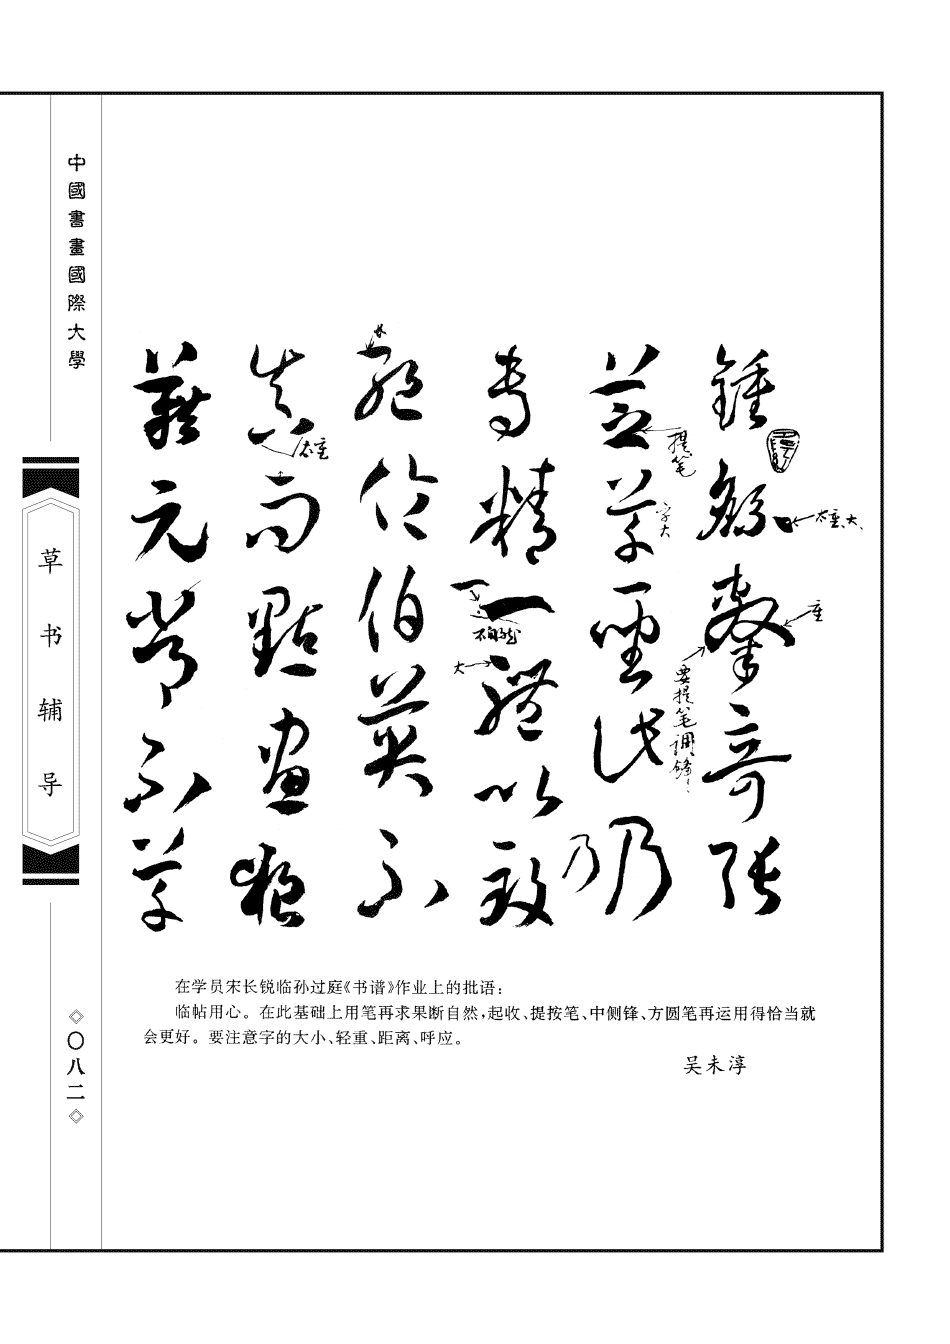 中國書畫國際大學
草书辅导
〇八二
鍾繇隸奇張
芝草聖此乃
專精一體以致
絕倫伯英不
真而點畫狼
藉元常不草
太重大、
重
要提笔调锋
提笔
字大
乃
大
太重
在学员宋长锐临孙过庭《书谱》作业上的批语:
临帖用心。在此基础上用笔再求果断自然,起收、提按笔、中侧锋、方圆笔再运用得恰当就
会更好。要注意字的大小、轻重、距离、呼应。
吴未淳